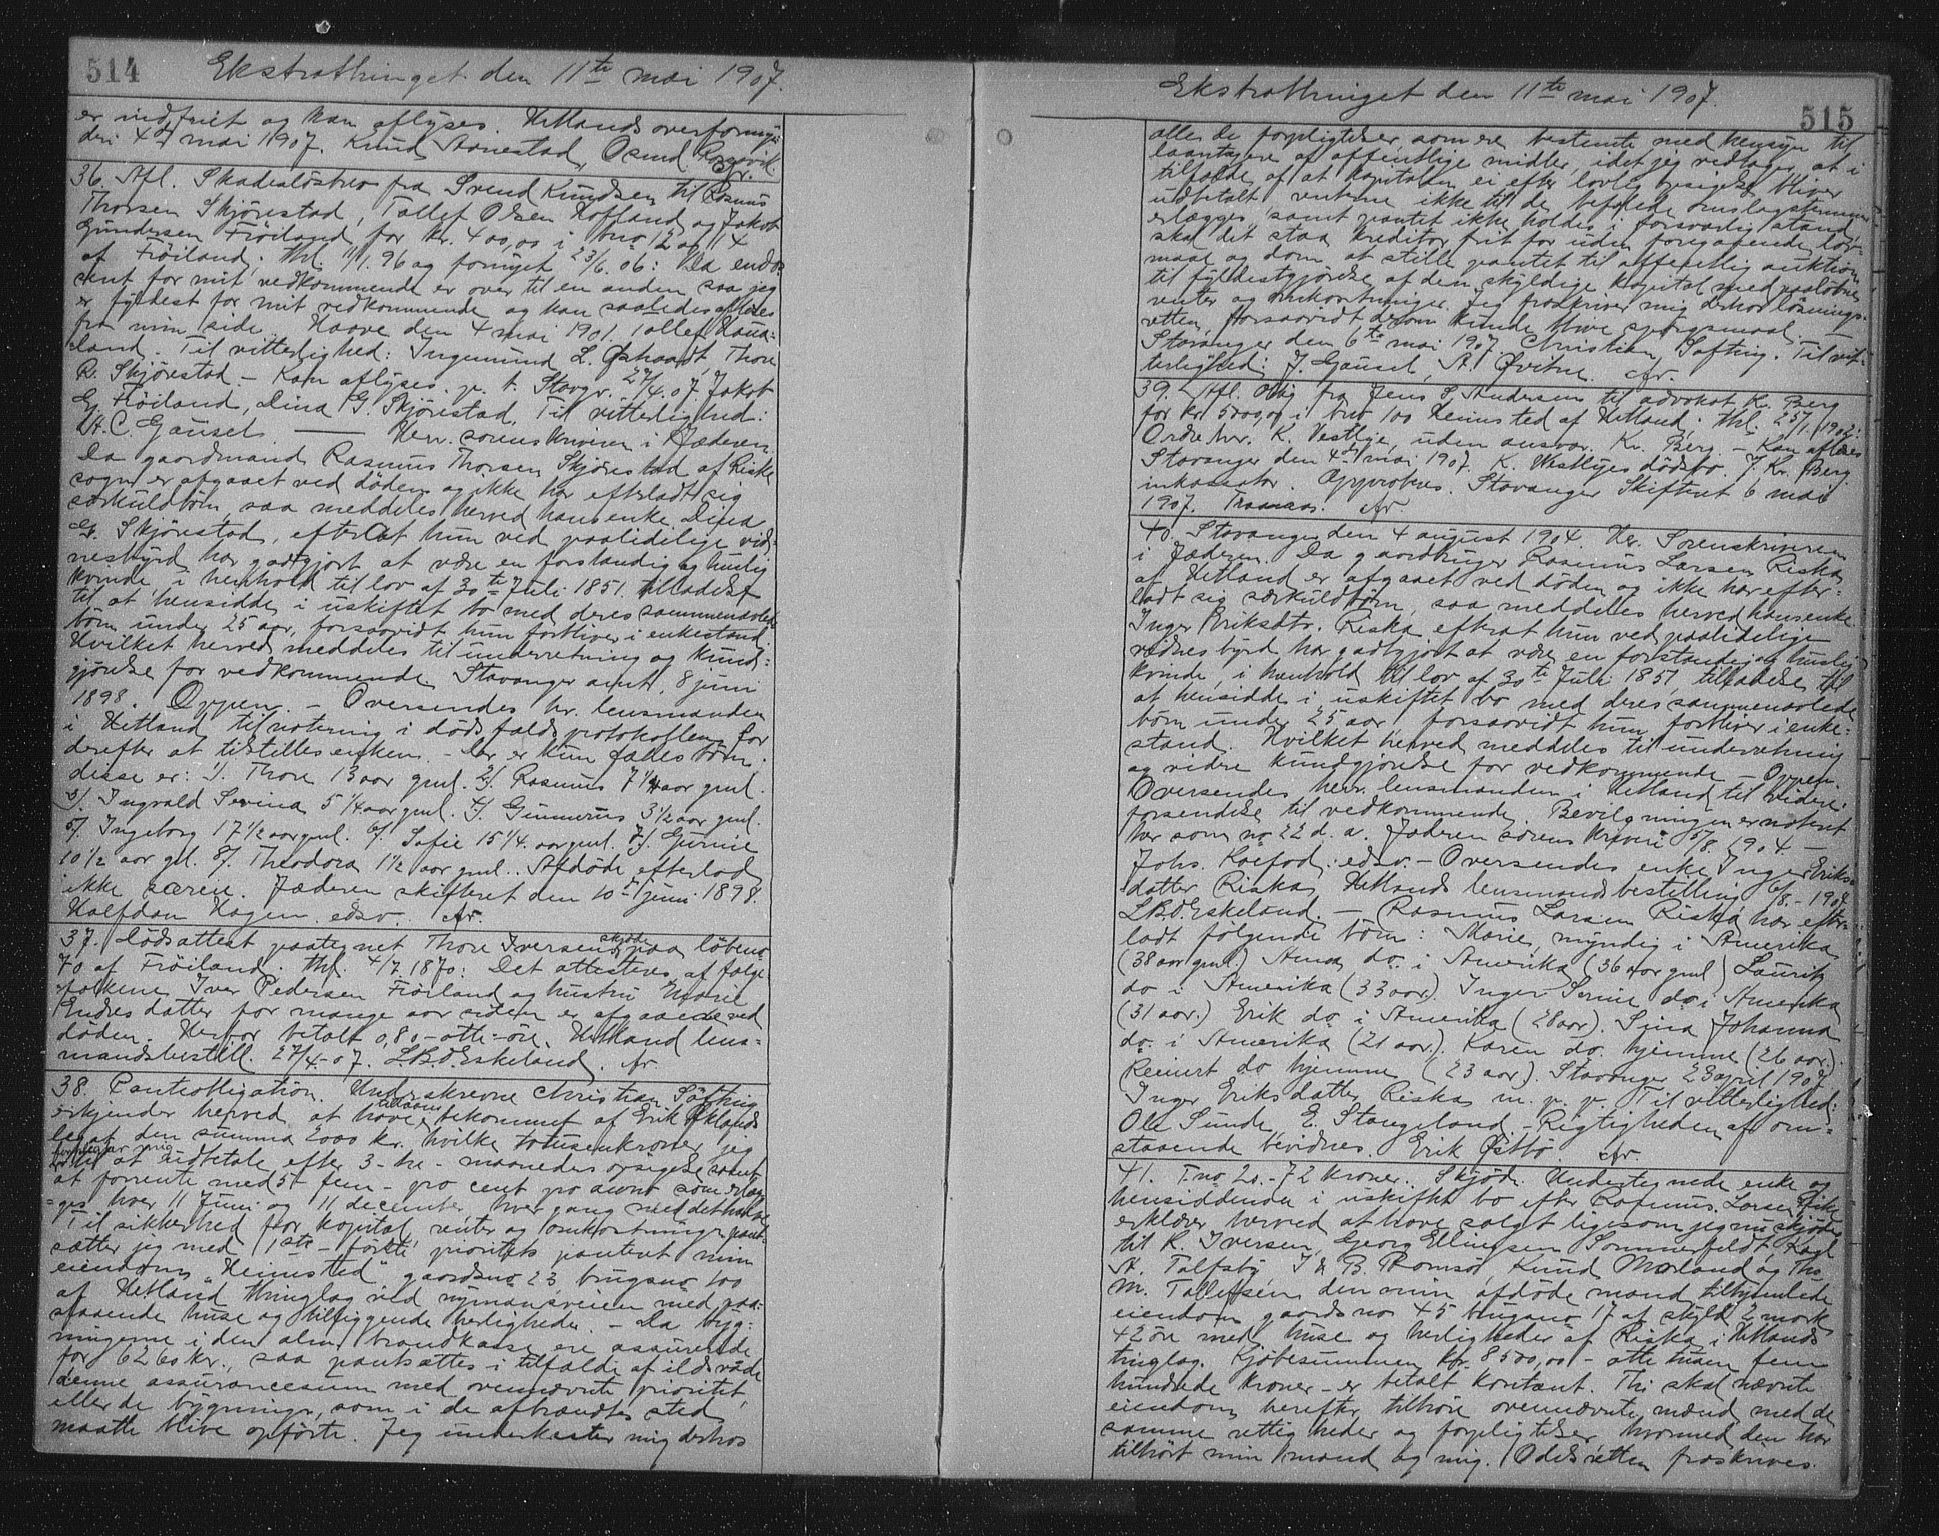 514
Ekstrathinget den 11te mai 1907.
er indfriet og kan aflyses. Hetlands overformyn-
deri 4de mai 1907. Knud Aanestad, Osmd.
Ar.
36. Afl. Skadesløsbrev fra Svend Knudsen til Rasmus
Thorsen Skjørestad, Tollef Olsen Hofland og Jakob
Gundersen Frøiland, for kr. 400,00 i bno 12 og 14
af Frøiland. Thl. 1/1. 96 og fornyet 23/6. 06: Da endos
sent for mit vedkommende er over til en anden saa jeg
er fyldest for mit vedkommende og kan saaledes aflæses
fra min side. Haave den 4 mai 1901. Tollef Haua-
land. Til vitterlighed: Ingemund L. Thore
R. Skjørestad – Kan aflyses. p. t. Stavgr. 27/4. 07. Jakob
G. Frøiland, Dina G. Skjørestad. Til vitterlighed:
A. C. Gausel. — Herr. sorenskriveren i Jæderen.
Da gaardmand Rasmus Thorsen Skjørestad af Riska
sogn er afgaaet ved døden og ikke har efterladt sig
særkuldbørn, saa meddeles herved hans enke Dina
G. Skjørestad, efterat hun ved paalidelige vid-
nesbyrd har godtgjort at være en forstandig og huslig
kvinde, i henhold til lov af 30te Juli 1851 tilladelse
til at hensidde i uskiftet bo med deres sammenavlede
børn under 25 aar, forsaavidt hun forbliver i enkestand.
Hvilket herved meddeles til underretning og kund-
gjørelse for vedkommende Stavanger amt, 8 juni
1898. Oppen. – Oversendes hr. lensmanden
i Hetland til notering i dødsfaldsprotokollen for
derefter at tilstilles enken. – Der er kun fælles børn.
disse er: 1). Thore 13 aar gml. 2). Rasmus 7 1/4 aar gml.
3). Ingvald Sevina 5 1/4 aar gml. 4). Gunnerus 3 1/2 aar gml.
5). Ingeborg 17 1/2 aar gml. 6). Sofie 15 1/4. aar gml. 7). Gurine
10 1/2 aar gl. 8). Theodora 1 1/2 aar gml. Afdøde efterlod
ikke særeie. Jæderen skifteret den 10de juni 1898.
Halfdan Hagen. edsv. Ar.
37. Dødsattest paategnet Thore Iversens skjøde paa løbeno
70 af Frøiland. Thl. 4/7 1870: Det attesteres af følge-
folkene Iver Pedersen Frøiland og hustru Marie
Endresdatter for mange aar siden er afgaaede ved
døden. Herfor betalt 0,80 – otti – øre. Hetland lens-
mandsbestill. 27/4 – 07. L.B.d. Eskeland. Ar.
38. Panteobligation. Underskrevne Christian Søfting
erkjender herved at have tillaans bekommet af Erik
den summa 2000 kr. hvilke totusenkroner jeg
forpligtar mig til at udbetale efter 3-tre-maaneders opsigelse samt
at forrente med 5 – fem – pro cent pro anno som erlæg-
ges hver 11 Juni og 11 december hver gang med det halve
Til sikkerhed for kapital, renter og omkostninger pant-
sætter jeg med 1ste – første prioritets panteret min
eiendom "Heimsted" gaardsno 23 brugsno 100
af Hetland thinglag ved nymansveien med paa-
staaende huse og tilliggende herligheder. – Da byg-
ningerne i den alm. brandkasse ere assurerede
for 6260 kr., saa pantsættes i tilfælde af ildsvaade
denne assurancesum med ovennævnte prioritet,
eller de bygninger, som i de afbrændtes sted
maatte blive opførte. Jeg underkaster mig derhos
Ekstrathinget den 11te mai 1907.
515
alle de forpligtelser som ere bestemte med hensyn til
laantagere af offentlige midler, idet jeg vedtager at i
tilfælde af at kapitalen ei efter lovlig opsigelse bliver
udbetalt renterne ikke til de befalede omslagsterminer
erlægges, samt pantet ikke holdes i forsvarlig stand,
skal det staa kreditor frit for uden foregaaende lov-
maal og dom, at stille pantet til offentlig auktion
til fyldestgjørelse af den skyldige kapital med paaløbne
renter og omkostninger. Jeg fraskriver mig derhos løsnings-
retten, forsaavidt derom kunde blive spørgsmaal.
Stavanger den 6te mai 1907. Christian Søfting. Til vit-
terlighed: J. Gausel, A. Øvitne. Ar.
39. Afl. Oblg fra Jens S. Andersen til advokat K. Berg
for kr. 5000,00 i bno 100 Heimsted af Hetland. Thl. 25/1 1902:
Ordre hr. K. Vestlye, uden ansvar. Kr. Berg. – Kan aflæses
Stavanger den 4de mai 1907. K. Westlyes dødsbo. J. Kr. Berg
inkassator. Approberes. Stavanger Skifteret 6 mai
1907. Ar
40. Stavanger den 4 august 1904. Hr. Sorenskriveren
i Jæderen. Da gaardbruger Rasmus Larsen Riska
af Hetland er afgaaet ved døden og ikke har efter-
ladt sig særkuldbørn, saa meddeles herved hans enke
Inger Eriksdtr. Riska, efterat hun ved paalidelige
vidnesbyrd har godtgjort at være en forstandig og huslig
kvinde, i henhold til lov af 30te Juli 1851, tilladelse til
at hensidde i uskiftet bo med deres sammenavlede
børn under 25 aar, forsaavidt hun forbliver i enke-
stand. Hvilket herved meddeles til underretning
og videre kundgjørelse for vedkommende – Oppen.
Oversendes herr. lensmanden i Hetland til videre
forsendelse til vedkommende. Bevilgningen er noteret
her som no 22 d. a. Jæderen sorenskriveri 5/8. 1904. –
Johs. Koefod. edsv. – Oversendes enke Inger Eriks-
datter Riska, Hetlands lensmandsbestilling 6/8. – 1904.
L.B.d. Eskeland. — Rasmus Larsen Riska har efter-
ladt følgende børn: Marie, myndig i Amerika
(38 aar gml) Anna do. i Amerika (36 aar gml) Lauritz
do i Amerika (33 aar). Inger Serine do i Amerika
(31 aar.) Erik do i Amerika (28 aar). Sina Johanna
do. i Amerika (21 aar). Karen do. hjemme (26 aar)
Reinert do hjemme (23 aar). Stavanger 23 april 1907.
Inger Eriksdatter Riska m. p. p. Til vitterlighed:
Ole Sunde, E. Stangeland. – Rigtigheden af om-
staaende bevidnes. Erik Østbø. Ar
41. T. no 20. – 72 kroner. Skjøde. Undertegnede enke og
hensiddende i uskiftet bo efter Rasmus Larsen Riska
erklærer herved at have solgt ligesom jeg nu skjøder
til R. Iversen, Georg Ellingsen Sommerfeldt, Karl
A. Tolfsby, I. B. Thomsø, Knud Morland og Ths.
M. Tallefsen den min afdøde mand tilhørende
eiendom, gaards no 45 brugsno 17 af skyld 2 mark
42 øre med huse og herligheder af Riska i Hetlands
tinglag. Kjøbesummen Kr. 8500,00 – otte tusen fem
hundrede kroner – er betalt kontant. Thi skal nævnte
eiendom herefter tilhøre ovennævnte mænd med de
samme rettigheder og forpligtelser hvormed den har
tilhørt min mand og mig. Odelsretten fraskrives.